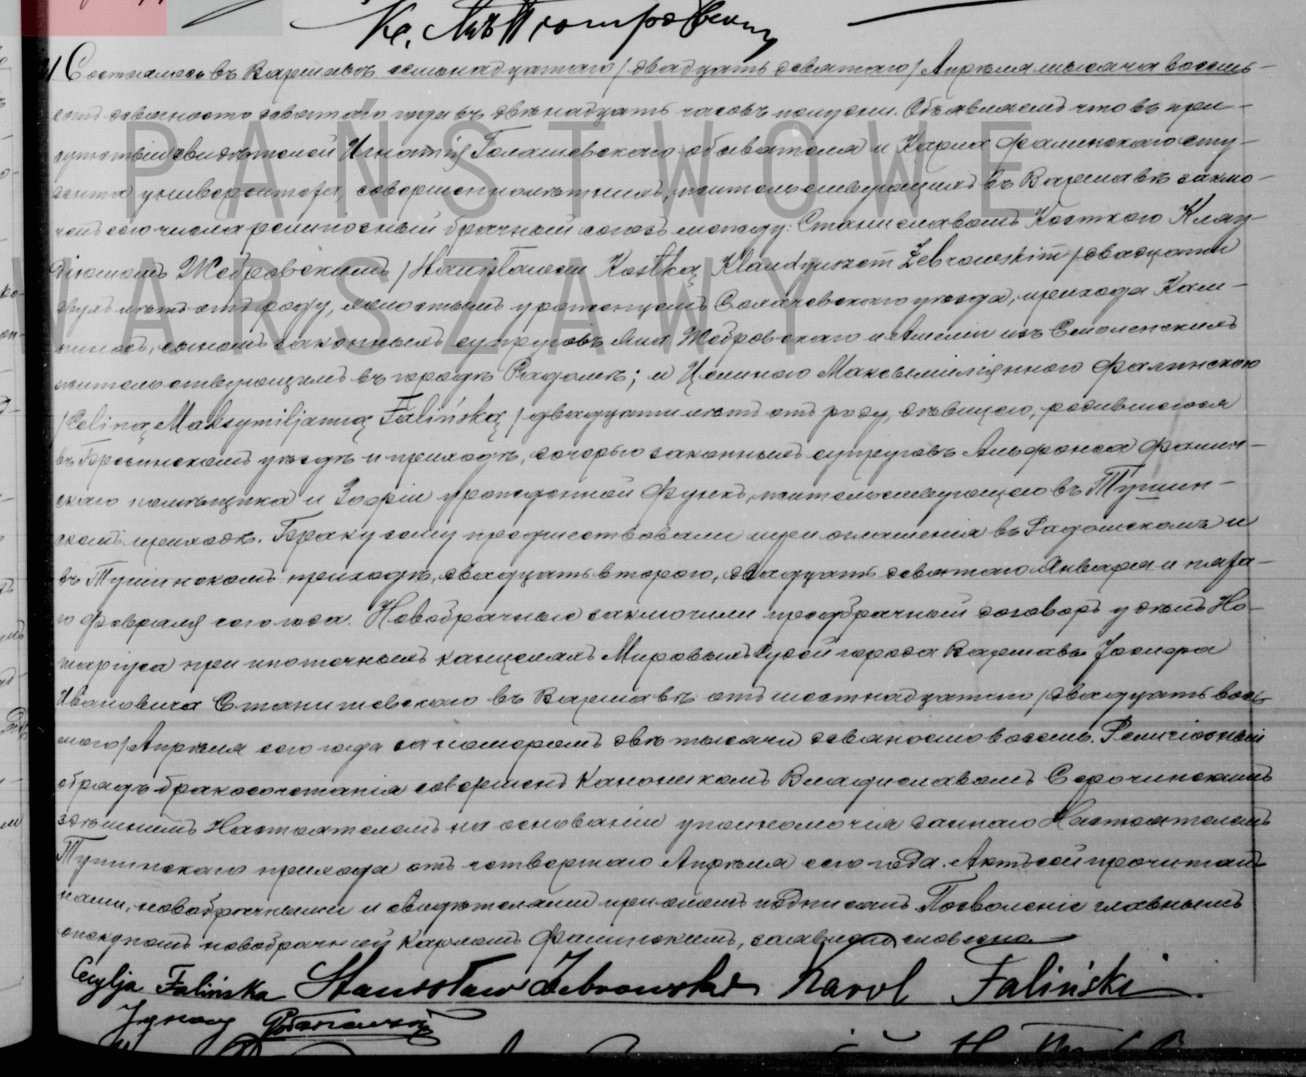 Состоялось въ Варшавѣ семьнадцатаго /двадцать девятаго/ Апрѣля тысяча восемь-
сотъ девяносто девятаго года въ двѣнадцать часовъ полудни. Объявляемъ что въ при-
сутствіи свидѣтелей Игнатія Голашевскаго обывателя и Карла Фалинскаго сту-
дента университета, совершеннолѣтнихъ, жительствующихъ въ Варшавѣ заклю-
ченъ сего числа религіозный брачный союзъ между: Станиславомъ Косткою Клау-
діюшомъ Жебровскимъ /Stanisławem Kostką Klaudyuszem Żebrowskim/ двадцати
двухъ лѣтъ отъ роду, холостымъ уроженцемъ уѣзда, прихода Кам-
сыномъ законныхъ супруговъ Яна Жебровскаго и Амеліи изъ Смоленскихъ
жительствующимъ въ городѣ Радомѣ; и Целиною Максымиліянною Фалинскою
/Celiną Maksymiljanną Falińską/ двадцати лѣтъ отъ роду, дѣвицею, родившеюся
въ уѣздѣ и приходѣ, дочерью законныхъ супруговъ Альфонса Фалин-
скаго помѣщика и Зофіи урожденной Функъ, жительствующею въ Тушин-
скомъ приходѣ. Браку сему предшествовали три оглашенія въ Радомскомъ и
въ Тушинскомъ приходѣ, двадцать второго, двадцать девятаго Января и пята-
го Февраля сего года. Новобрачные заключили предбрачный договоръ у Но-
таріуса при ипотечныхъ канцеляхъ Мировыхъ Судей города Варшавы Іосифа
Ивановича Станишевскаго въ Варшавѣ отъ шестнадцатаго /двадцать вось-
мого/ Апрѣля сего года за номеромъ двѣ тысячи девяносто восемь. Религіозный
обрядъ бракосочетанія совершенъ Каноникомъ Владиславомъ Сѣрочинскимъ
здѣшнимъ Настоятелемъ на основаніи уполномочія даннаго Настоятелемъ
Тушинскаго прихода отъ четвертаго Апрѣля сего года. Актъ сей прочитанъ
нами, новобрачными и свидѣтелями при ономъ подписанъ. Позволеніе главнымъ
опекуномъ новобрачной Карломъ Фалинскимъ, словесно
Falińska Stanisław Żebrowski Karol Faliński
Ignacy